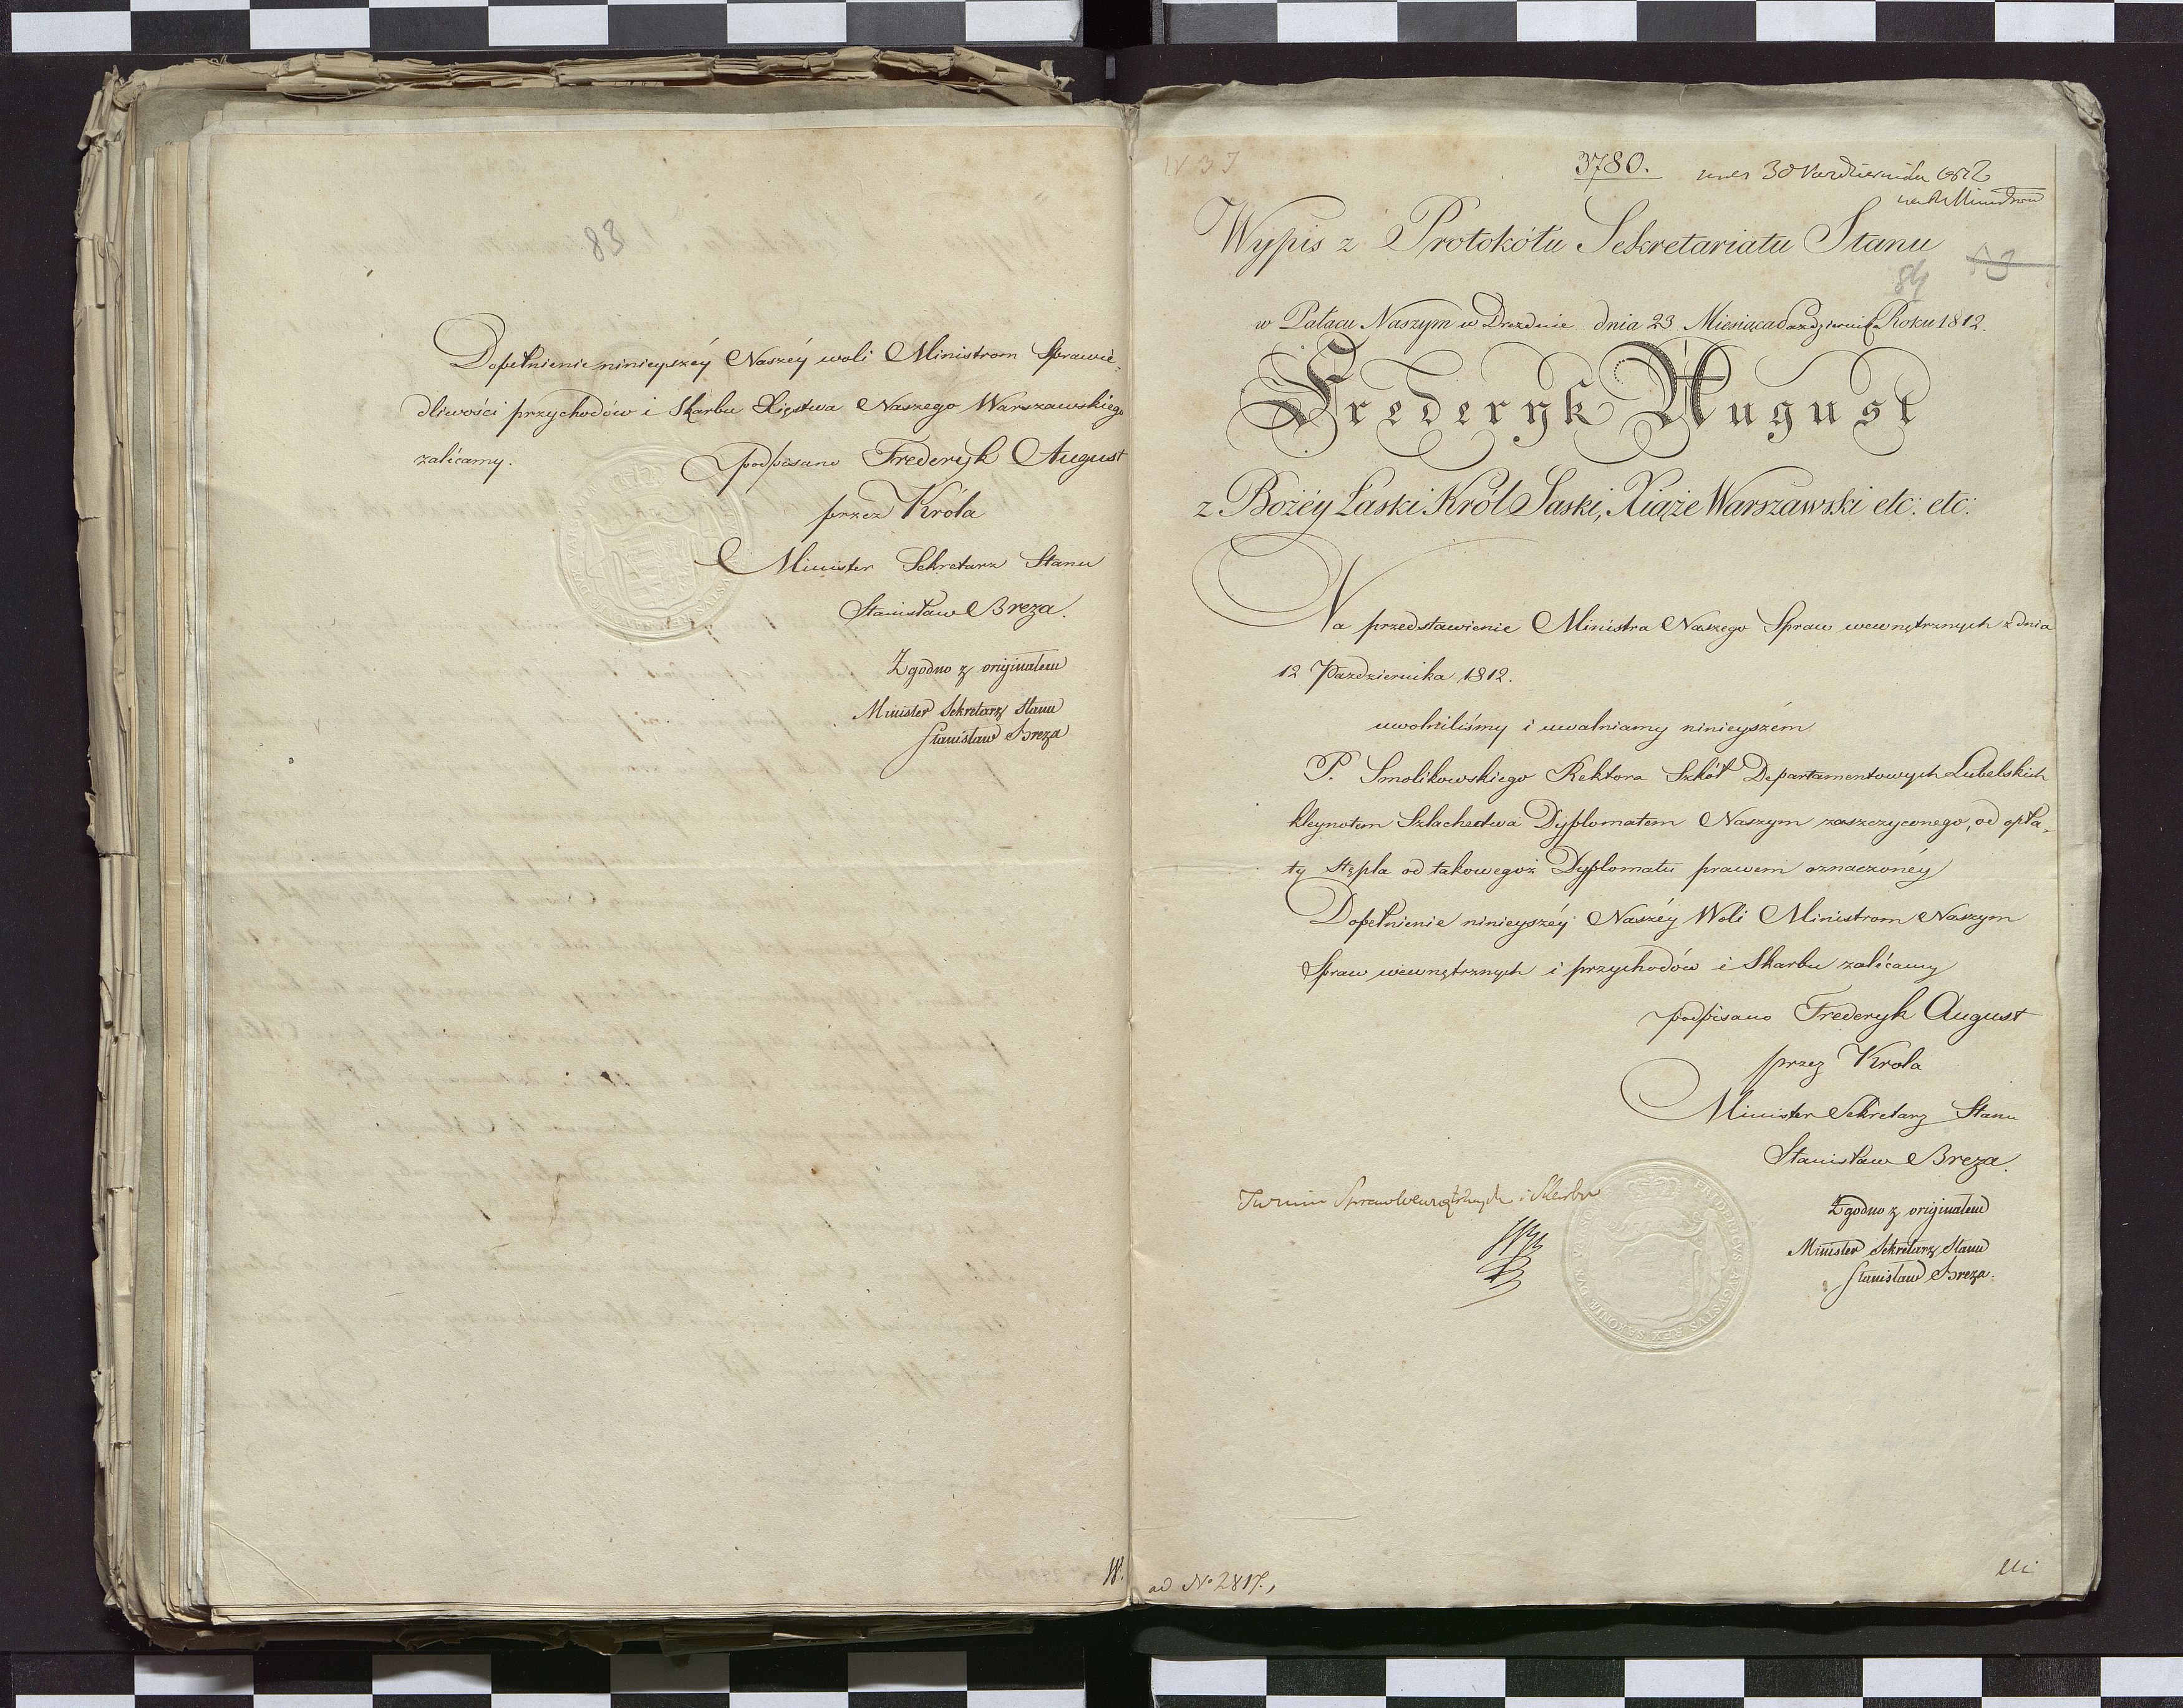 83
Dopełnienie ninieyszéy Naszéy woli Ministrom Sprawie-
dliwości przychodów i Skarbu Xięstwa Naszego Warszawskiego
zalécamy.
podpisano Frederyk August
przez Króla
Minister Sekretarz Stanu
Stanisław Breza.
Zgodno z originałem
Minister Sekretarz Stanu
Stanisław Breza
W.
3780.
30 Października 1812
Wypis z Protokółu Sekretariatu Stanu
84
w Pałacu Naszym w Dreźdnie dnia 23 Miesiąca Października Roku 1812.
Frederyk August
z Bożéy Łaski Król Saski, Xiąże Warszawski etc: etc:
Na przedstawienie Ministra Naszego Spraw wewnętrznych z dnia
12 Pazdziernika 1812.
uwolniliśmy i uwalniamy ninieyszém
P. Smolikowskiego Rektora Szkół Departamentowych Lubelskich
kleynotem Szlachectwa Dyplomatem Naszym zaszczyconego, od opła-
ty stępla od takowegoż Dyplomatu prawem oznaczonéy
Dopełnienie ninieyszéy Naszéy Woli Ministrom Naszym
Spraw wewnętrznych i przychodów i Skarbu zalécamy
podpisano Frederyk August
przez Króla
Minister Sekretarz Stanu
Stanisław Breza.
Spraw Wewnętrznych i Skarbu
Zgodno z originałem
Minister Sekretarz Stanu
Stanisław Breza.
FRIDERICVS AVGVSTVS REX SAXONIÆ DVX VARSOV
ad No 2817.,